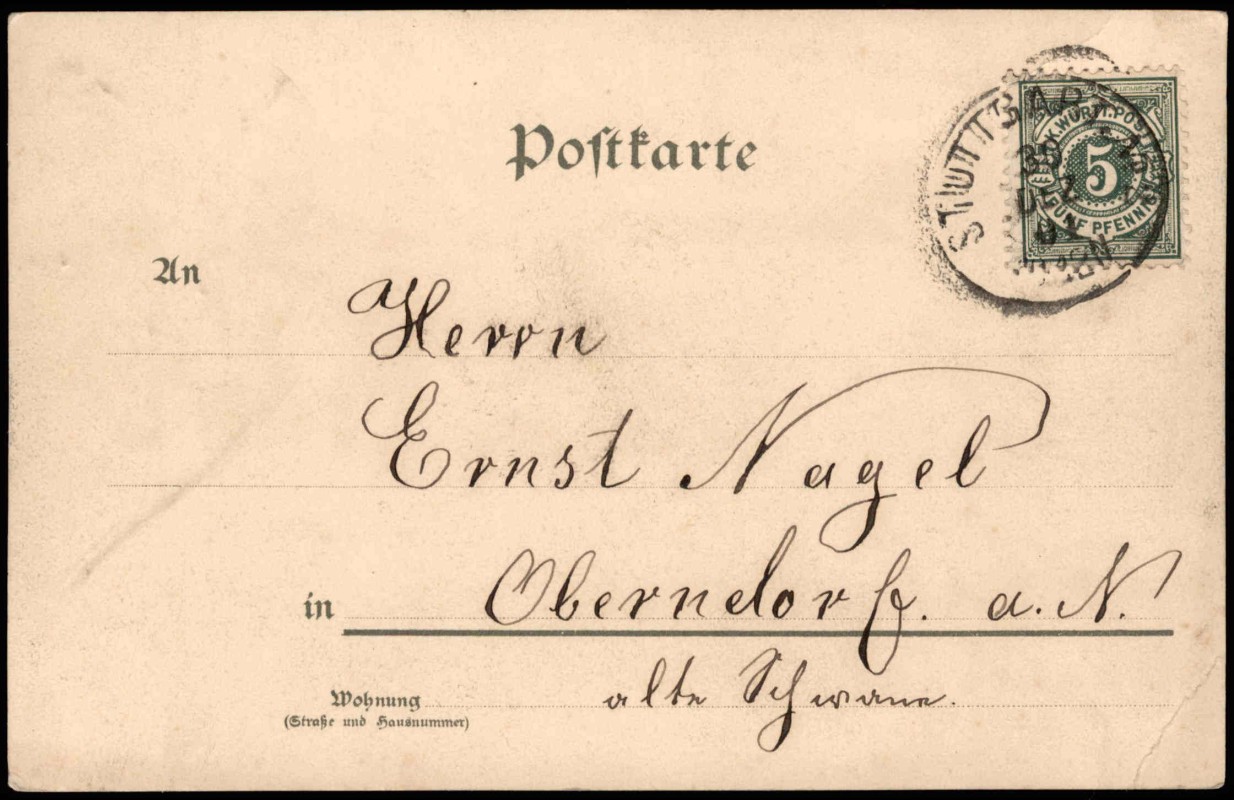 Postkarte
K. WÜRTT. POST
5
FÜNF PFENNIG
STUTTGART
An
Herrn
Ernst Nagel
in Oberndorf. a. N.
Wohnung alte
(Straße und Hausnummer)